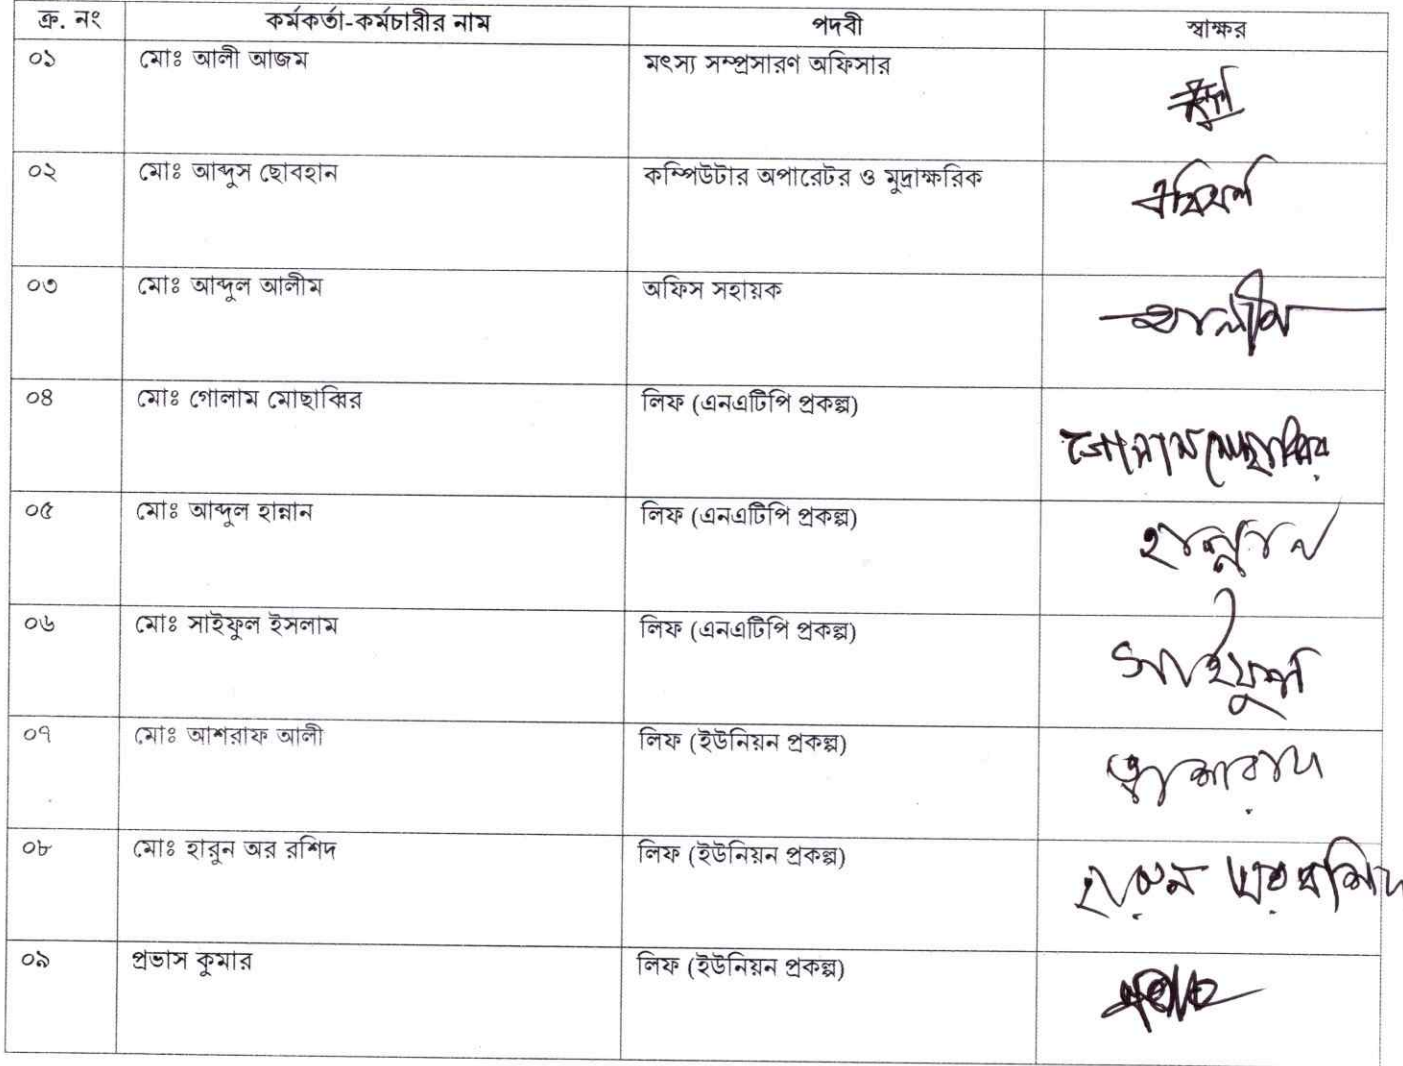 ক্র. নং কর্মকর্তা-কর্মচারীর নাম পদবী স্বাক্ষর
০১ মোঃ আলী আজম মৎস্য সম্প্রসারণ অফিসার
০২ মোঃ আব্দুস ছোবহান কম্পিউটার অপারেটর ও মুদ্রাক্ষরিক
০৩ মোঃ আব্দুল আলীম অফিস সহায়ক আলীম
০৪ মোঃ গোলাম মোছাব্বির লিফ (এনএটিপি প্রকল্প) গোলাম মোছাব্বির
০৫ মোঃ আব্দুল হান্নান লিফ (এনএটিপি প্রকল্প) হান্নান
০৬ মোঃ সাইফুল ইসলাম লিফ (এনএটিপি প্রকল্প) সাইফুল
০৭ মোঃ আশরাফ আলী লিফ (ইউনিয়ন প্রকল্প) আশরাফ
০৮ মোঃ হারুন অর রশিদ লিফ (ইউনিয়ন প্রকল্প) হারুন অর রশিদ
০৯ প্রভাস কুমার লিফ (ইউনিয়ন প্রকল্প)